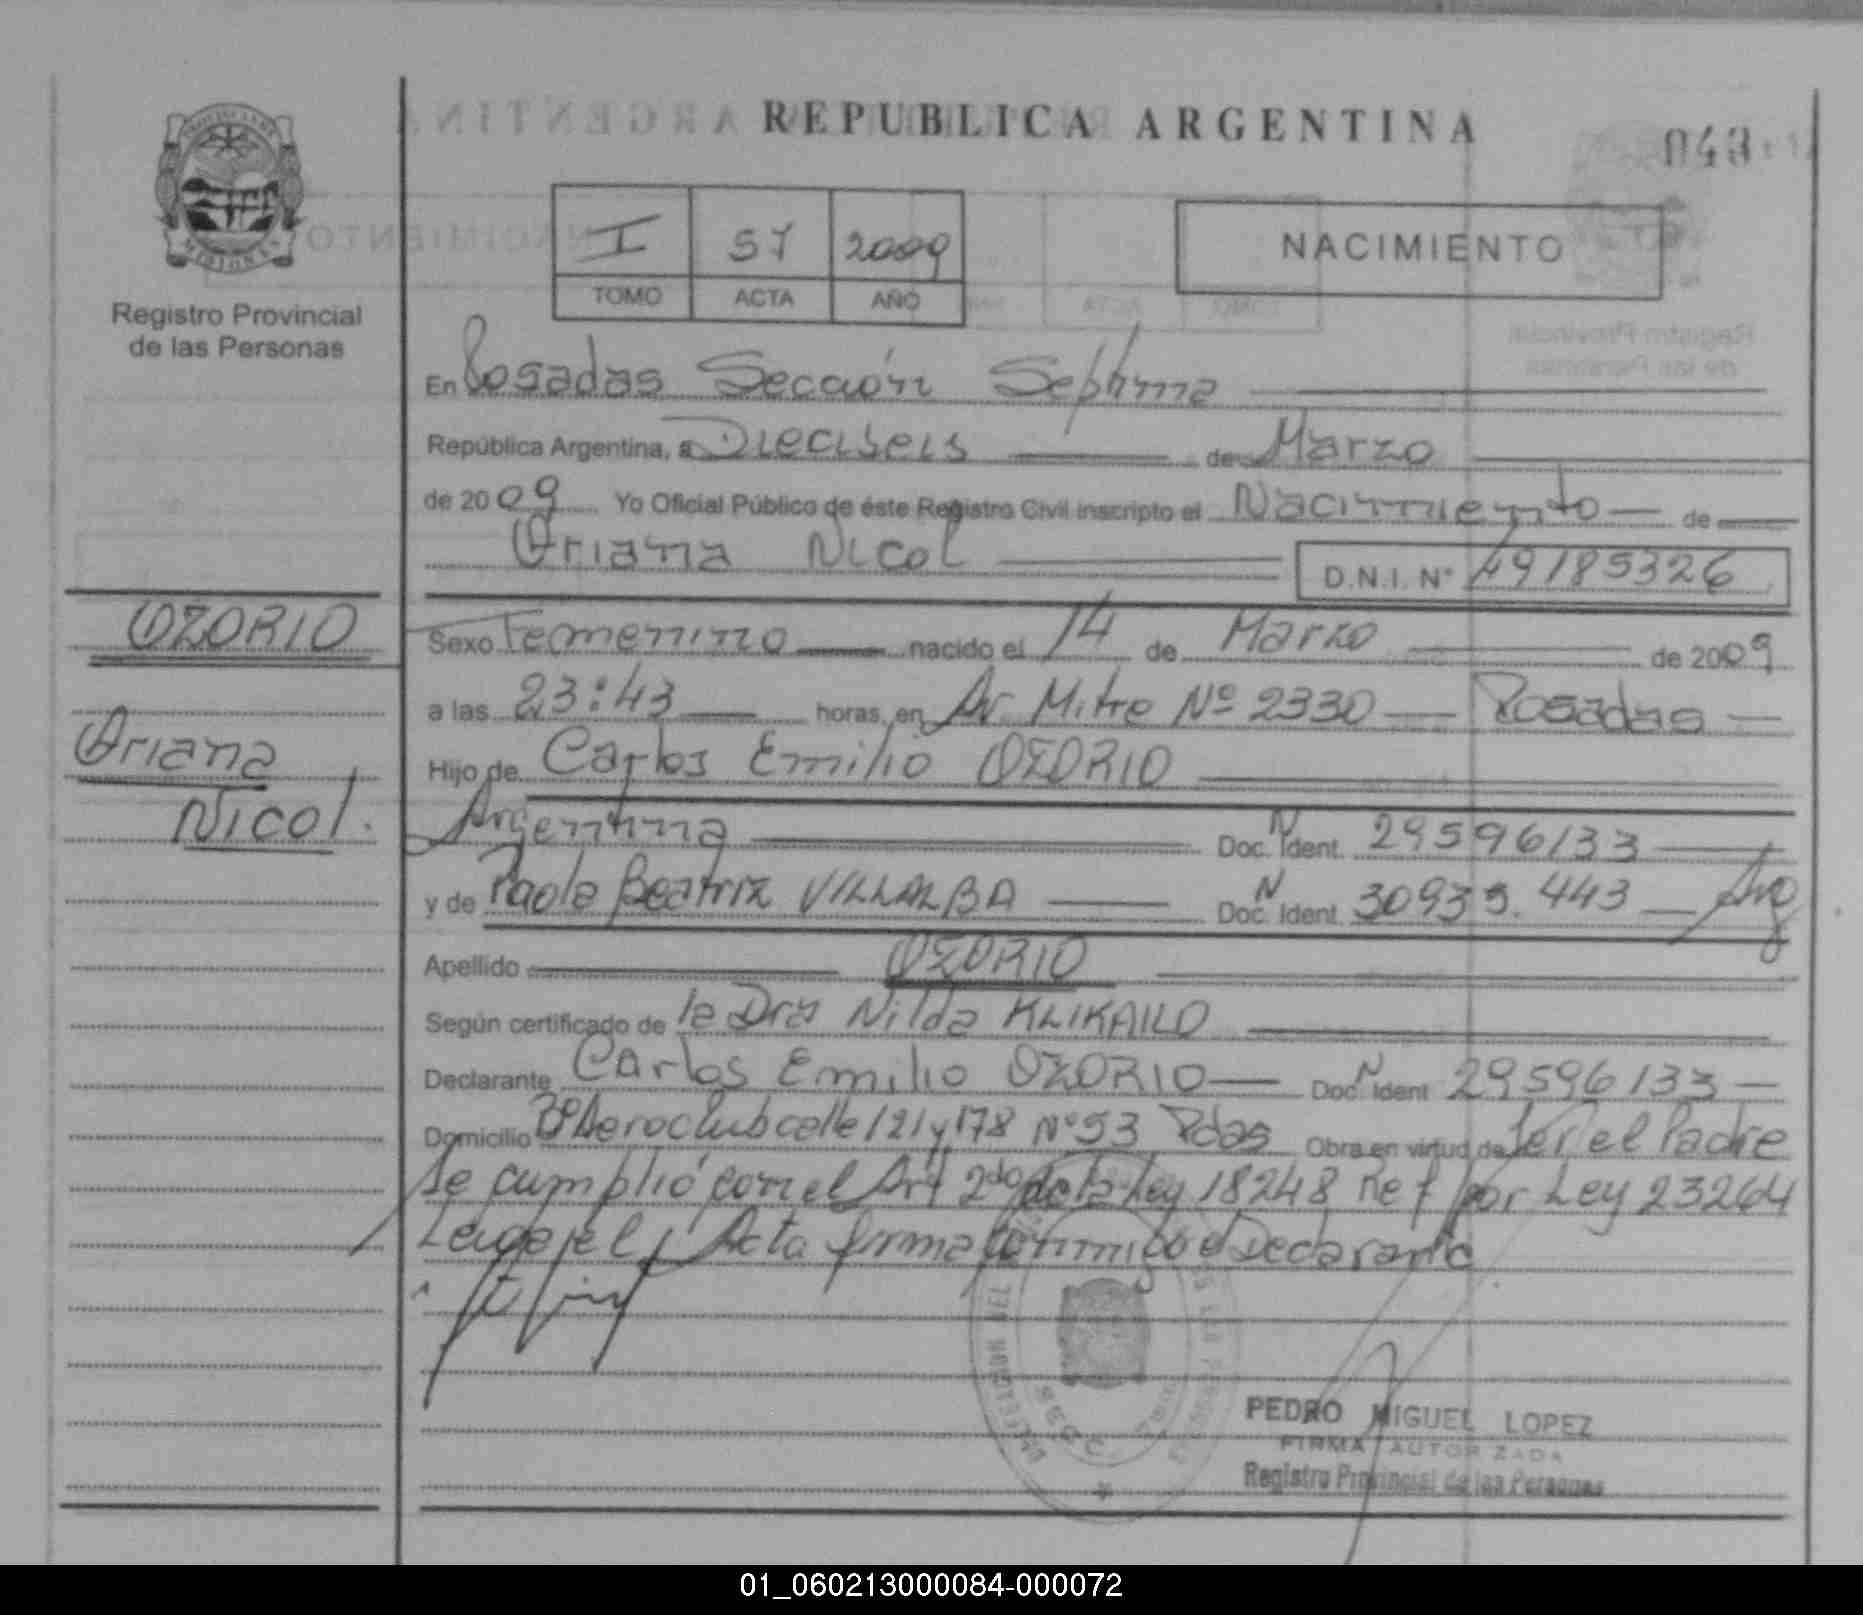 REPUBLICA ARGENTINA
043
PROVINCIA DE
MISIONES
Registro Provincial
de las Personas
I 57 2009
TOMO ACTA AÑO
NACIMIENTO
En Posadas Sección Septima
República Argentina, a Dieciseis de Marzo
de 2009 Yo Oficial Público de éste Registro Civil inscripto el Nacimiento de
Oriana Nicol D.N.I. Nº 49185326
OZORIO
Oriana
Nicol.
Sexo Femenino nacido el 14 de Marzo de 2009
a las 23:43 horas, en Av. Mitre Nº 2330 Posadas
Hijo de Carlos Emilio OZORIO
Argentina Doc. N Ident. 29596133
y de Paola Beatriz VILLALBA Doc. N Ident. 30935.443 Arg
Apellido OZORIO
Según certificado de la Dra Nilda KLIKAILO
Declarante Carlos Emilio OZORIO Doc. N Ident 29596133
Domicilio Bº Aeroclub calle 121 y 178 Nº 53 Pdas Obra en virtud de Ser el Padre
Se cumplió con el Art 2do de la Ley 18248 Ref por Ley 23264
Leida el Acta firma conmigo el Declarante
SECC.
PEDRO MIGUEL LOPEZ
FIRMA AUTORIZADA
Registro Provincial de las Personas
01_060213000084-000072